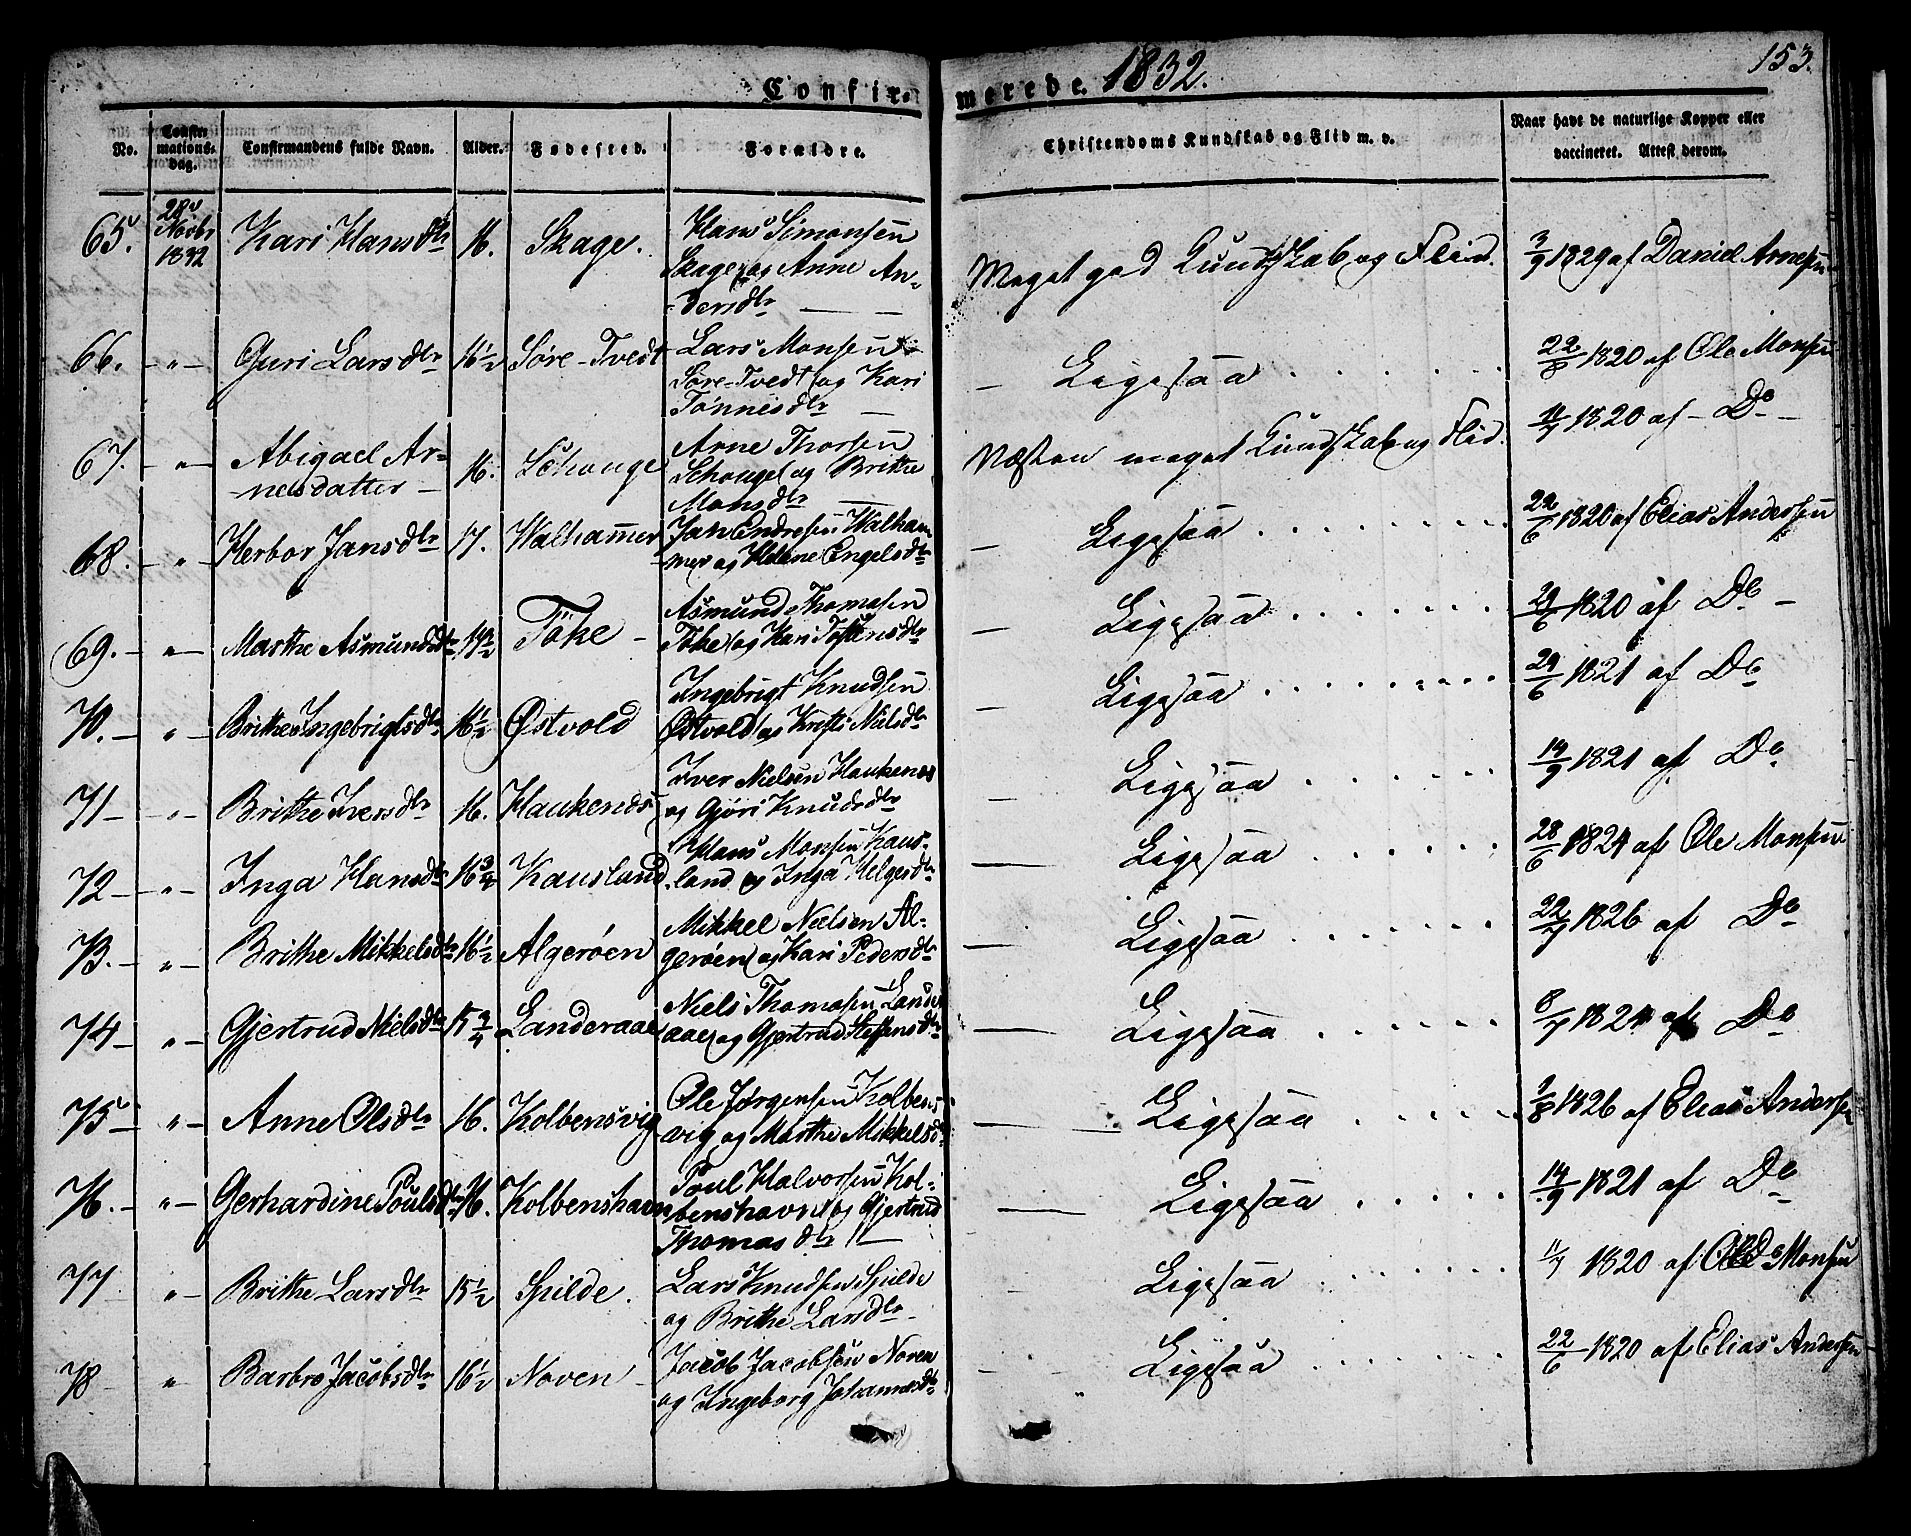 153.
Confir-
merede. 1832.
No.
Confir
mations-
dag.
Confirmandens fulde Navn.
Alder.
Fødested.
Forældre.
Christendoms Kundskab og Flid m. v.
Naar havt de naturlige Kopper eller
vaccineret. Attest derom.
65. 28 Novbr 1832 Kari Hansdtr 16. Skage. Hans Simonsen
Skage og Anne An-
dersdtr
Meget god Kundskab og Flid. 3/9 1829 af Daniel Arnesen
66. - " - Guri Larsdtr 16 1/2 Søre-Tvedt Lars Monsen
Søre-Tvedt og Kari
Tönnesdtr
Ligesaa 22/8 1820 af Ole Monsen
67. - " - Abigael Ar-
nesdatter 16. Schouge Arne Thorsen
Schouge og Brithe
Monsdtr
Næsten meget Kundskab og Flid. 11/7 1820 af - Do -
68. - " - Herbor Jansdtr 17. Walhamer Jan Endresen Walham
mer og Helene Engelsdtr
Ligesaa 22/6 1820 af Elias Andersen
69. - " - Marthe Asmundsdtr Töke Asmund Thomasen
Töke og Kari Tostensdtr
Ligesaa 1820 af Do
70. - " - Brithe Ingebrigtsdtr 16 1/2 Østvold Ingebrigt Knudsen
Østvold og Kristi Nielsdtr
Ligesaa 29/6 1821 af Do
71 - " - Brithe Iversdtr 16. Haukenæs Iver Nielsen Haukenæs
og Gjöri Knudsdtr
Ligesaa 14/9 1821 af Do
72 - " - Inga Hansdtr 16 3/4 Kausland Hans Monsen Kaus-
land og Inga Helgesdtr
Ligesaa 28/6 1824 af Ole Monsen
73. - " - Brithe Mikkelsdtr 16 1/2 Algeröen Mikkel Nielsen Al-
geröen og Kari Pedersdtr
Ligesaa 22/7 1826 af Do
74 - " - Gjertrud Nielsdtr 15 3/4 Landeraae Niels Thomasen Lander
aae og Gjertrud Steffensdtr
Ligesaa 8/7 1824 af Do
75 - " - Anne Olsdtr 16. Kolbensvig Ole Jørgensen Kolbens
vig og Marthe Mikkelsdtr
Ligesaa 1826 af Elias Andersen
76. - " - Gerhardine Poulsdtr 16. Kolbenshavn Poul Halvorsen Kol-
benshavn og Gjertrud
Thomasdtr
Ligesaa 14/9 1821 af Do
77 - " - Brithe Larsdtr 15 1/2 Spilde. Lars Knudsen Spilde
og Brithe Larsdtr
Ligesaa 11/7 1820 af Ole Monsen
78 " Barbro Jacobsdtr 16 1/2 Noven Jacob Jacobsen Noven
og Ingeborg Johannesdtr
Ligesaa 22/6 1820 af Elias Andersen